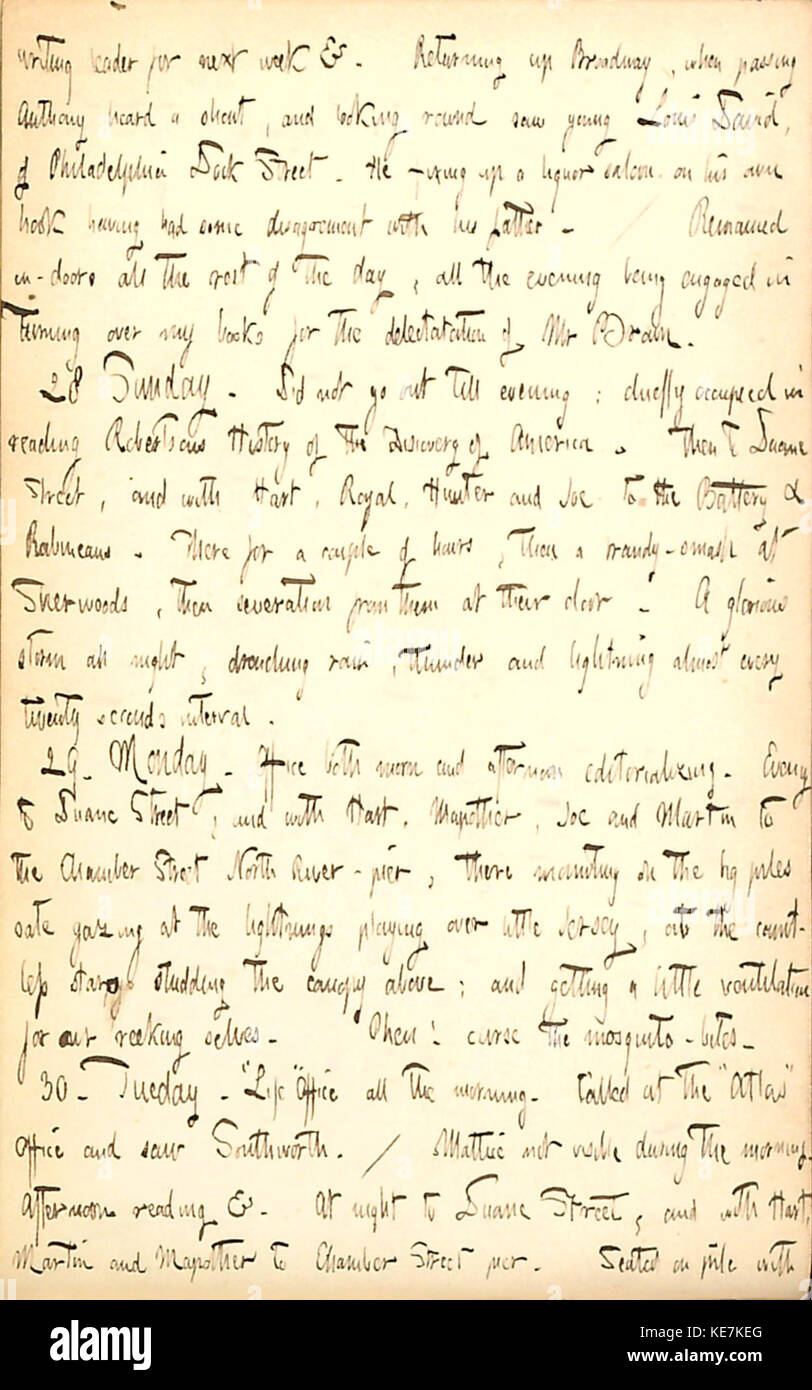 writing leader for next week &c. Returning up Broadway, when passing
Anthony heard a shout, and looking round saw young Louis David,
of Philadelphia Dock Street. He fixing up a liquor saloon on his own
hook having had some disagreement with his father - / Remained
in-doors all the rest of the day, all the evening being engaged in
turning over my books for the delectation of Mr
28 Sunday. Did not go out till evening; chiefly occupied in
reading Robertsons History of the Discovery of America. Then to Duane
Street, and with Hart, Royal, Hunter and Joe to the Battery &
Rabineaus. There for a couple of hours, then a brandy-smash at
Sherwoods, then separation from them at their door. A glorious
storm all night, drenching rain, thunder and lightning almost every
twenty seconds interval.
29. Monday. Office both morn and afternoon editorializing. Evening
to Duane Street, and with Hart, Mapother, Joe and Martin to
the Chamber Street North River-pier, there mounting on the big piles
sate gazing at the lightnings playing over little Jersey, at the count-
less stars studding the canopy above; and getting a little ventilation
for our reeking selves. Phew! curse the mosquito-bites.
30. Tuesday. "Life" Office all the morning. Called at the "Atlas"
Office and saw Southworth. / Mattie not visible during the morning.
Afternoon reading &c. At night to Duane Street, and with Hart,
Martin and Mapother to Chamber Street pier. Seated on pile with
alamy stock photo
KE7KEG
www.alamy.com